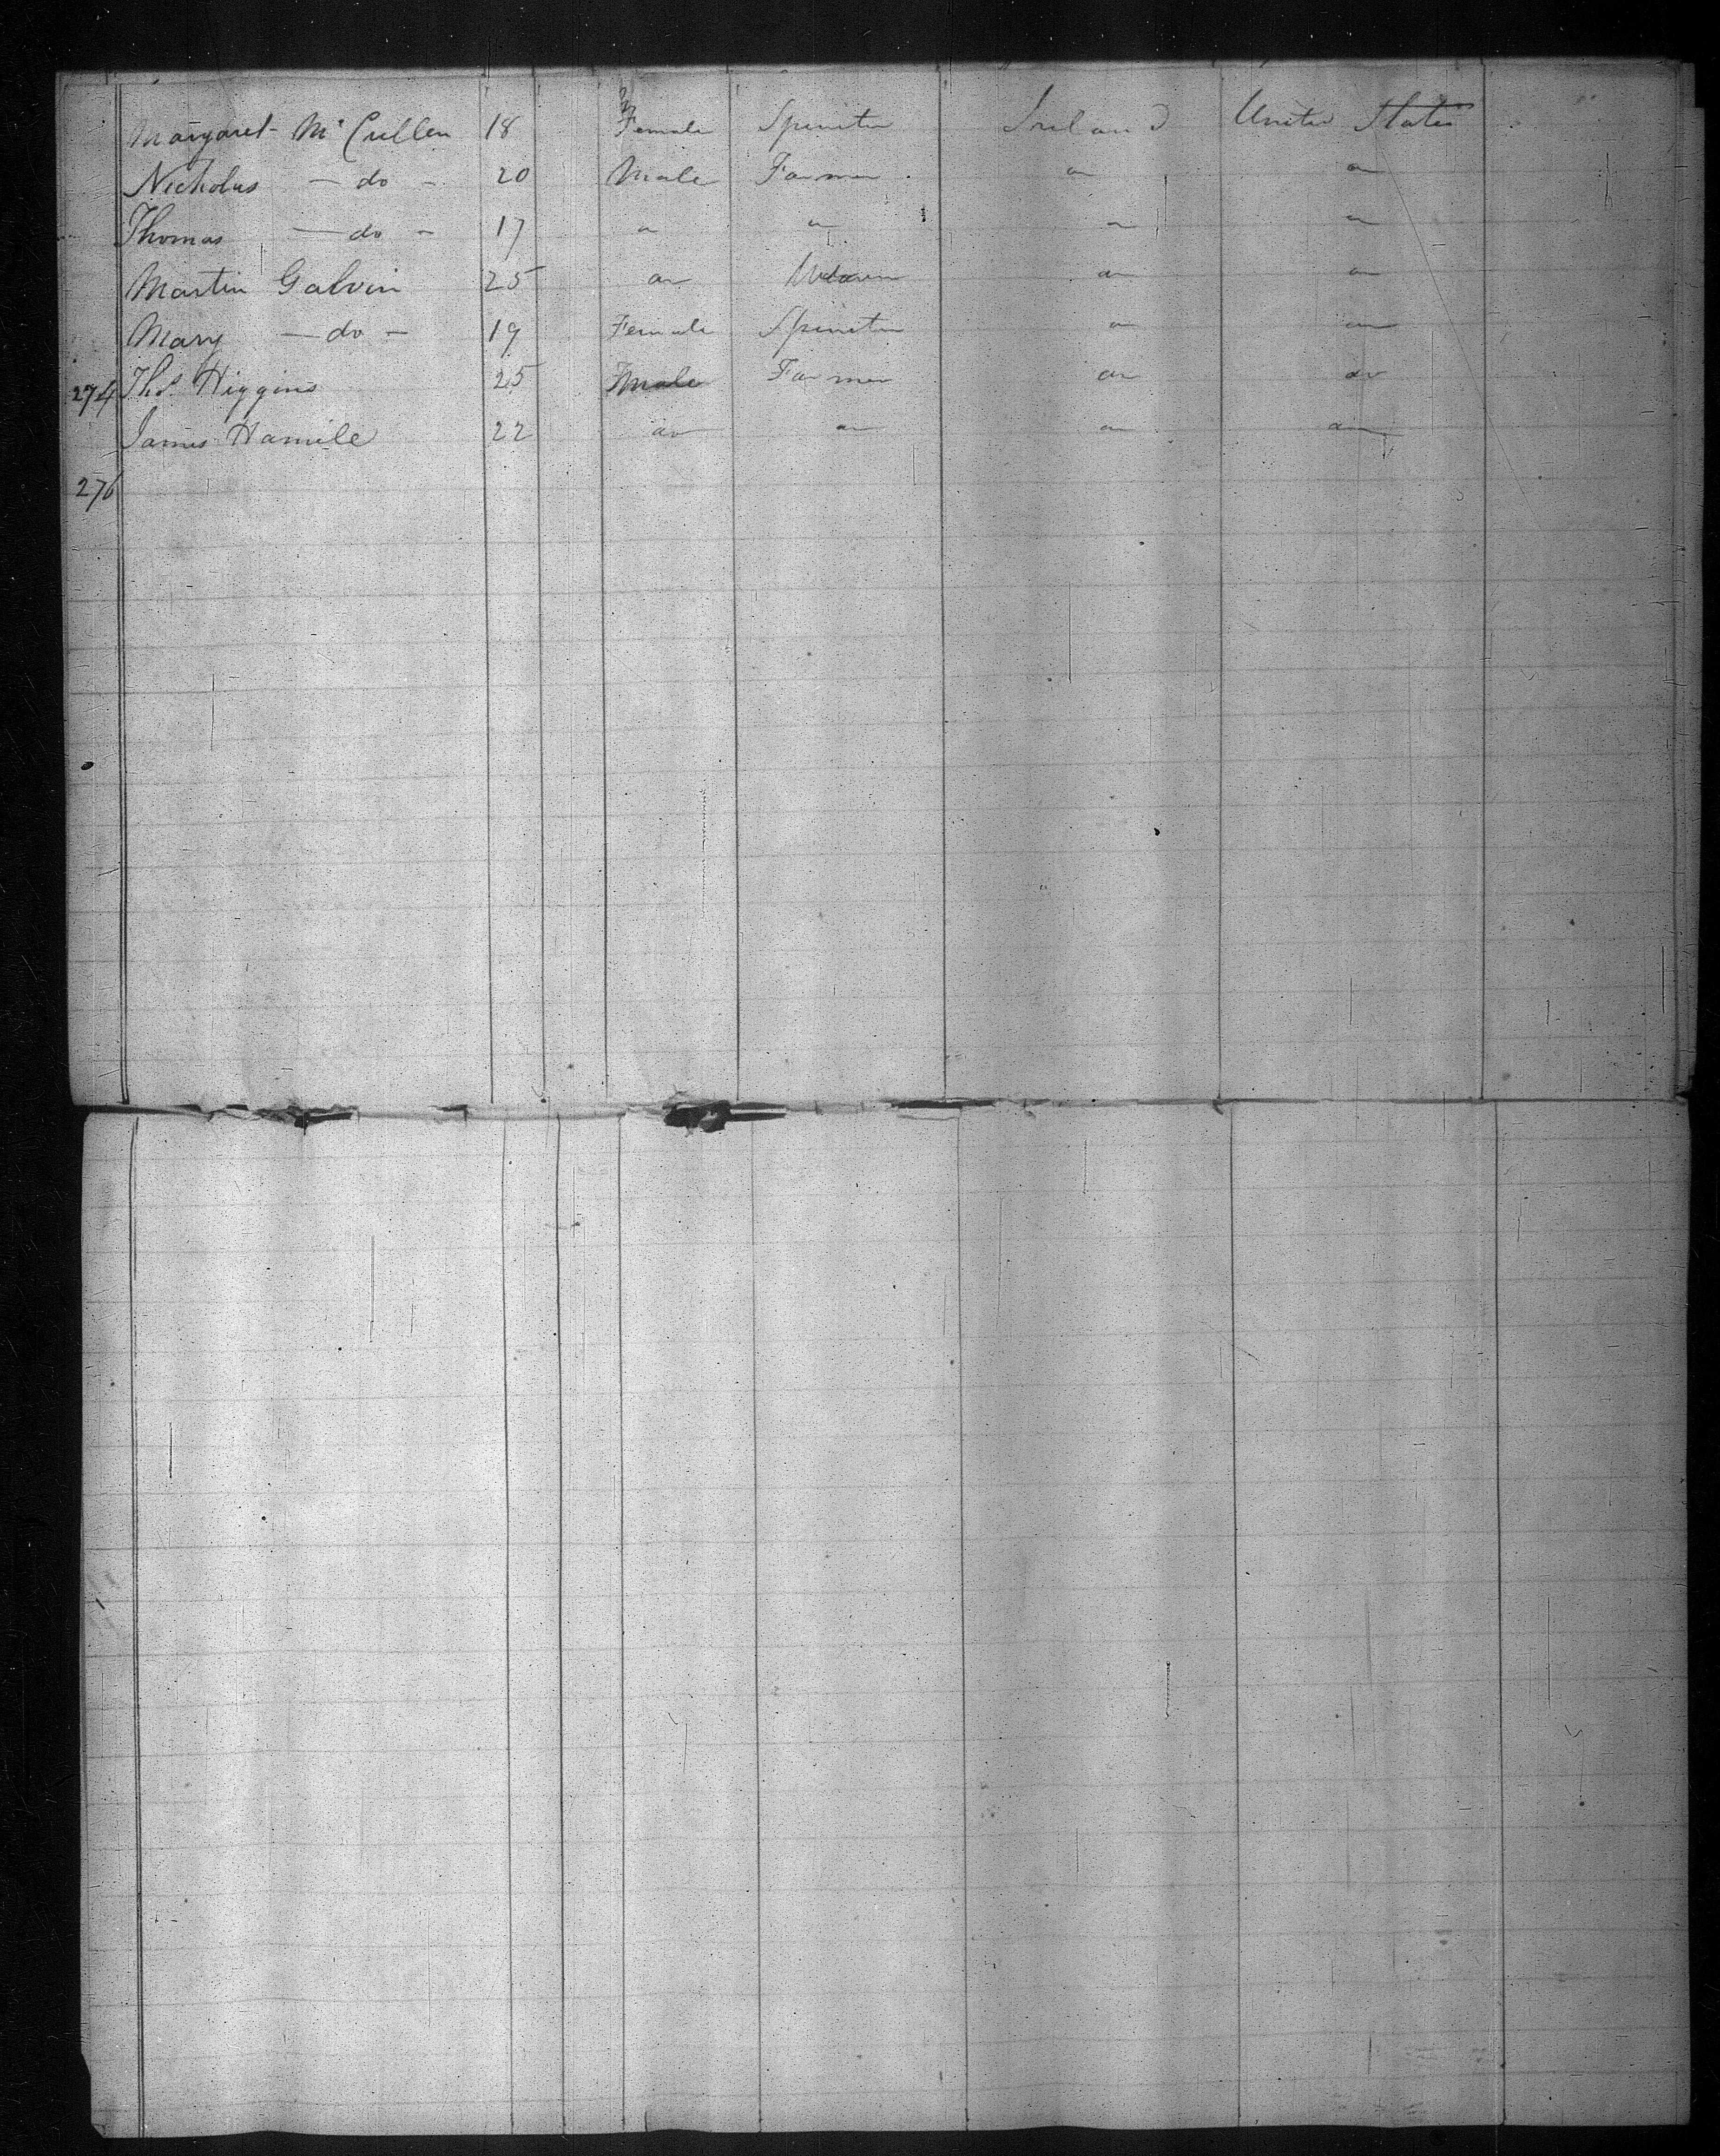 Margaret Mc Cullen 18 Female Spinster Ireland United States
Nicholas — do — 20 Male Farmer do do
Thomas — do — 17 do do do do
Martin Galvin 25 do Weaver do do
Mary — do — 19 Female Spinster do do
274 Thos. Higgins 25 Male Farmer do do
James Hamile 22 do do do do
276